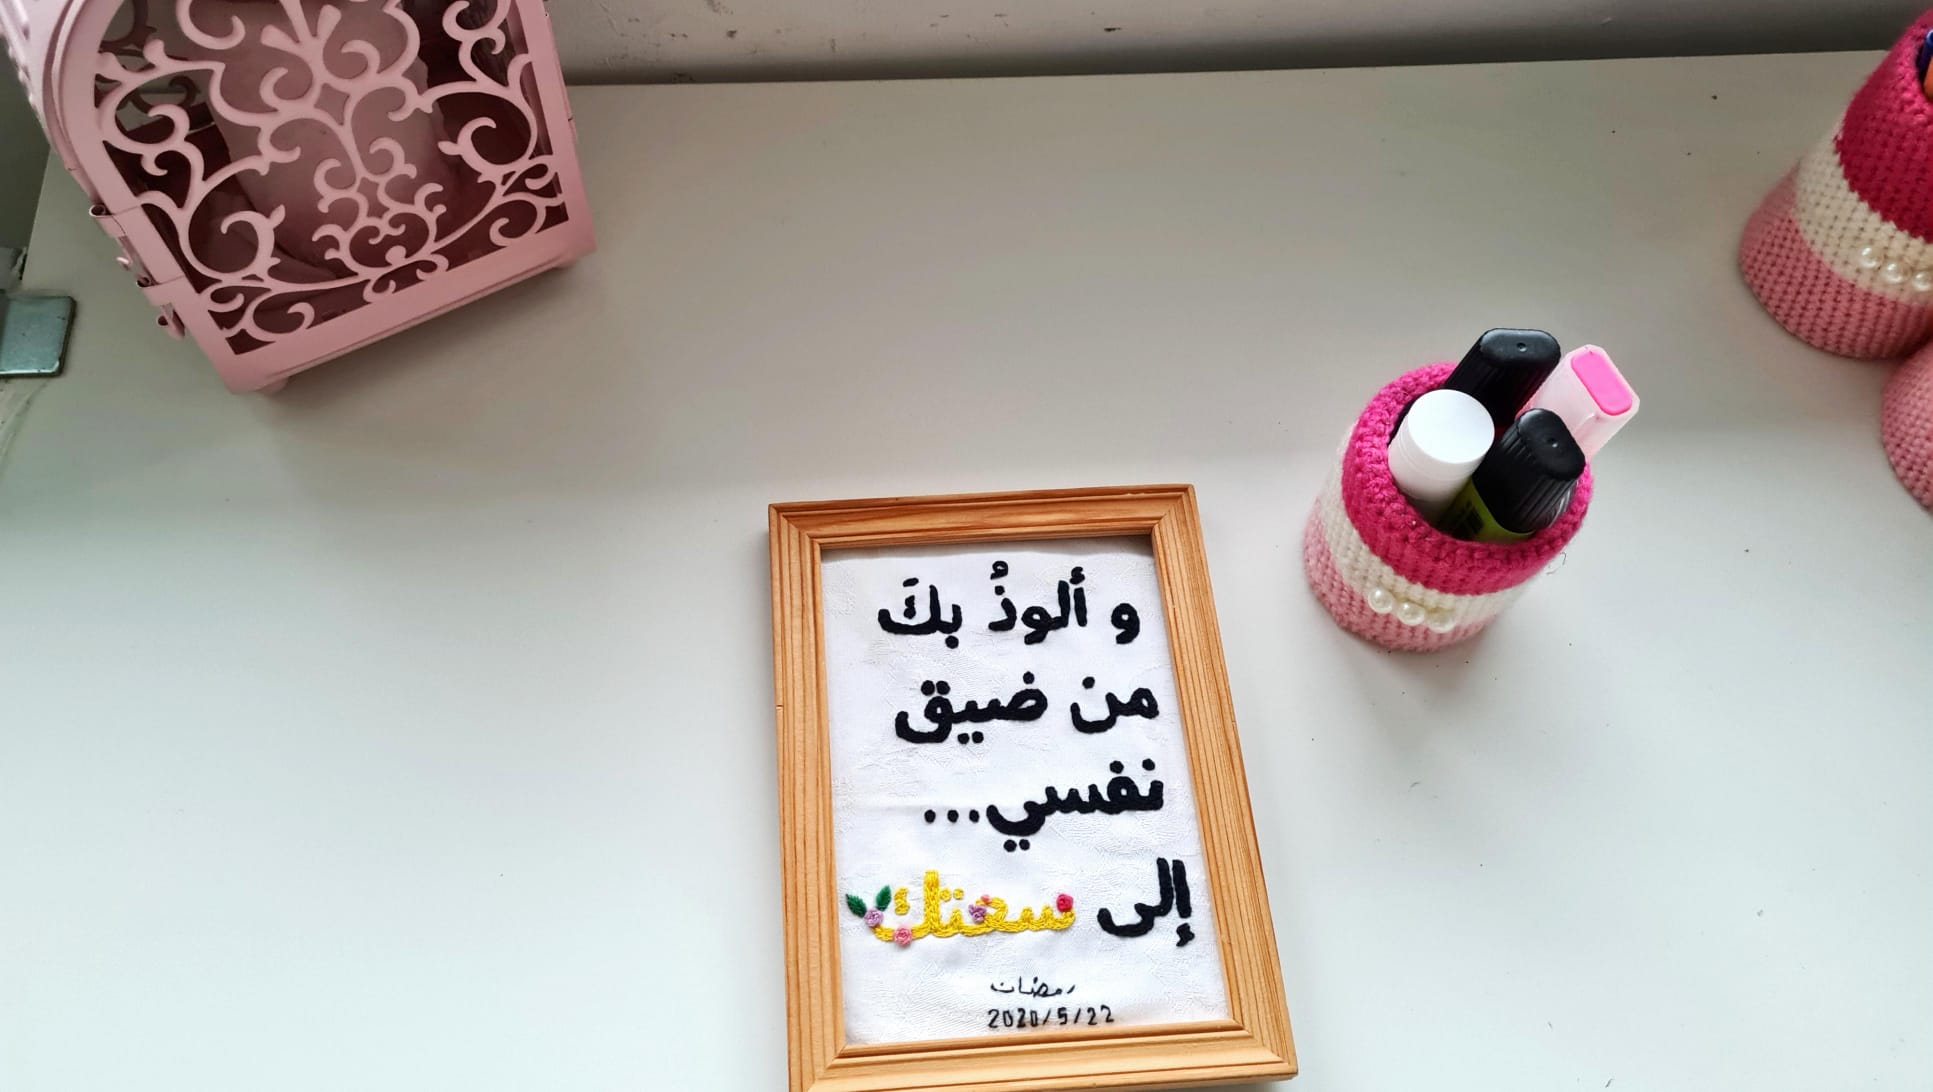 و ألوذُ بكَ
من ضيق
نفسي...
إلى سعتك
رمضان
2020/5/22